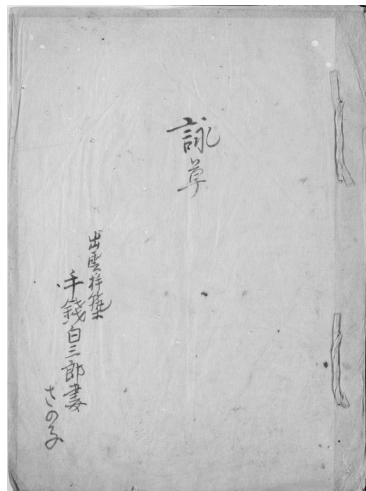 詠草
出雲杵築
手錢白三郎妻
さの子